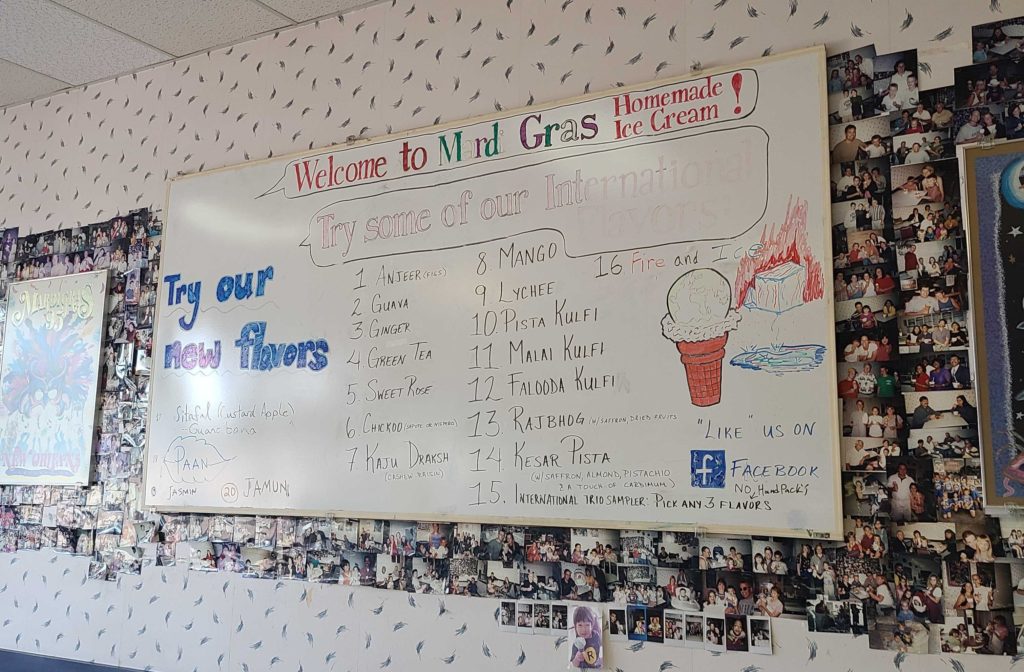 Welcome to Mardi Gras Homemade Ice Cream!
Try some of our International
Flavors:
Try our
new flavors
Sitafal (Custard Apple)
PAAN
JASMIN
20 JAMUN
1 ANJEER (FIGS)
2 GUAVA
3 GINGER
4 GREEN TEA
5. SWEET ROSE
6 CHICKOO
7 KAJU DRAKSH
(CASHEW RAISIN)
8. MANGO
9 LYCHEE
10 PISTA KULFI
11 MALAI KULFI
12 FALOODA KULFI
13. RAJBHOG (W/SAFFRON, DRIED FRUITS
14 KESAR PISTA
(W/SAFFRON, ALMOND, PISTACHIO
& A TOUCH OF CARDIMUM)
15. INTERNATIONAL TRIO SAMPLER: PICK ANY 3 FLAVORS
16 Fire and Ice
"LIKE" US ON
f FACEBOOK
NO HandPacks
MARDI GRAS
NEW ORLEANS